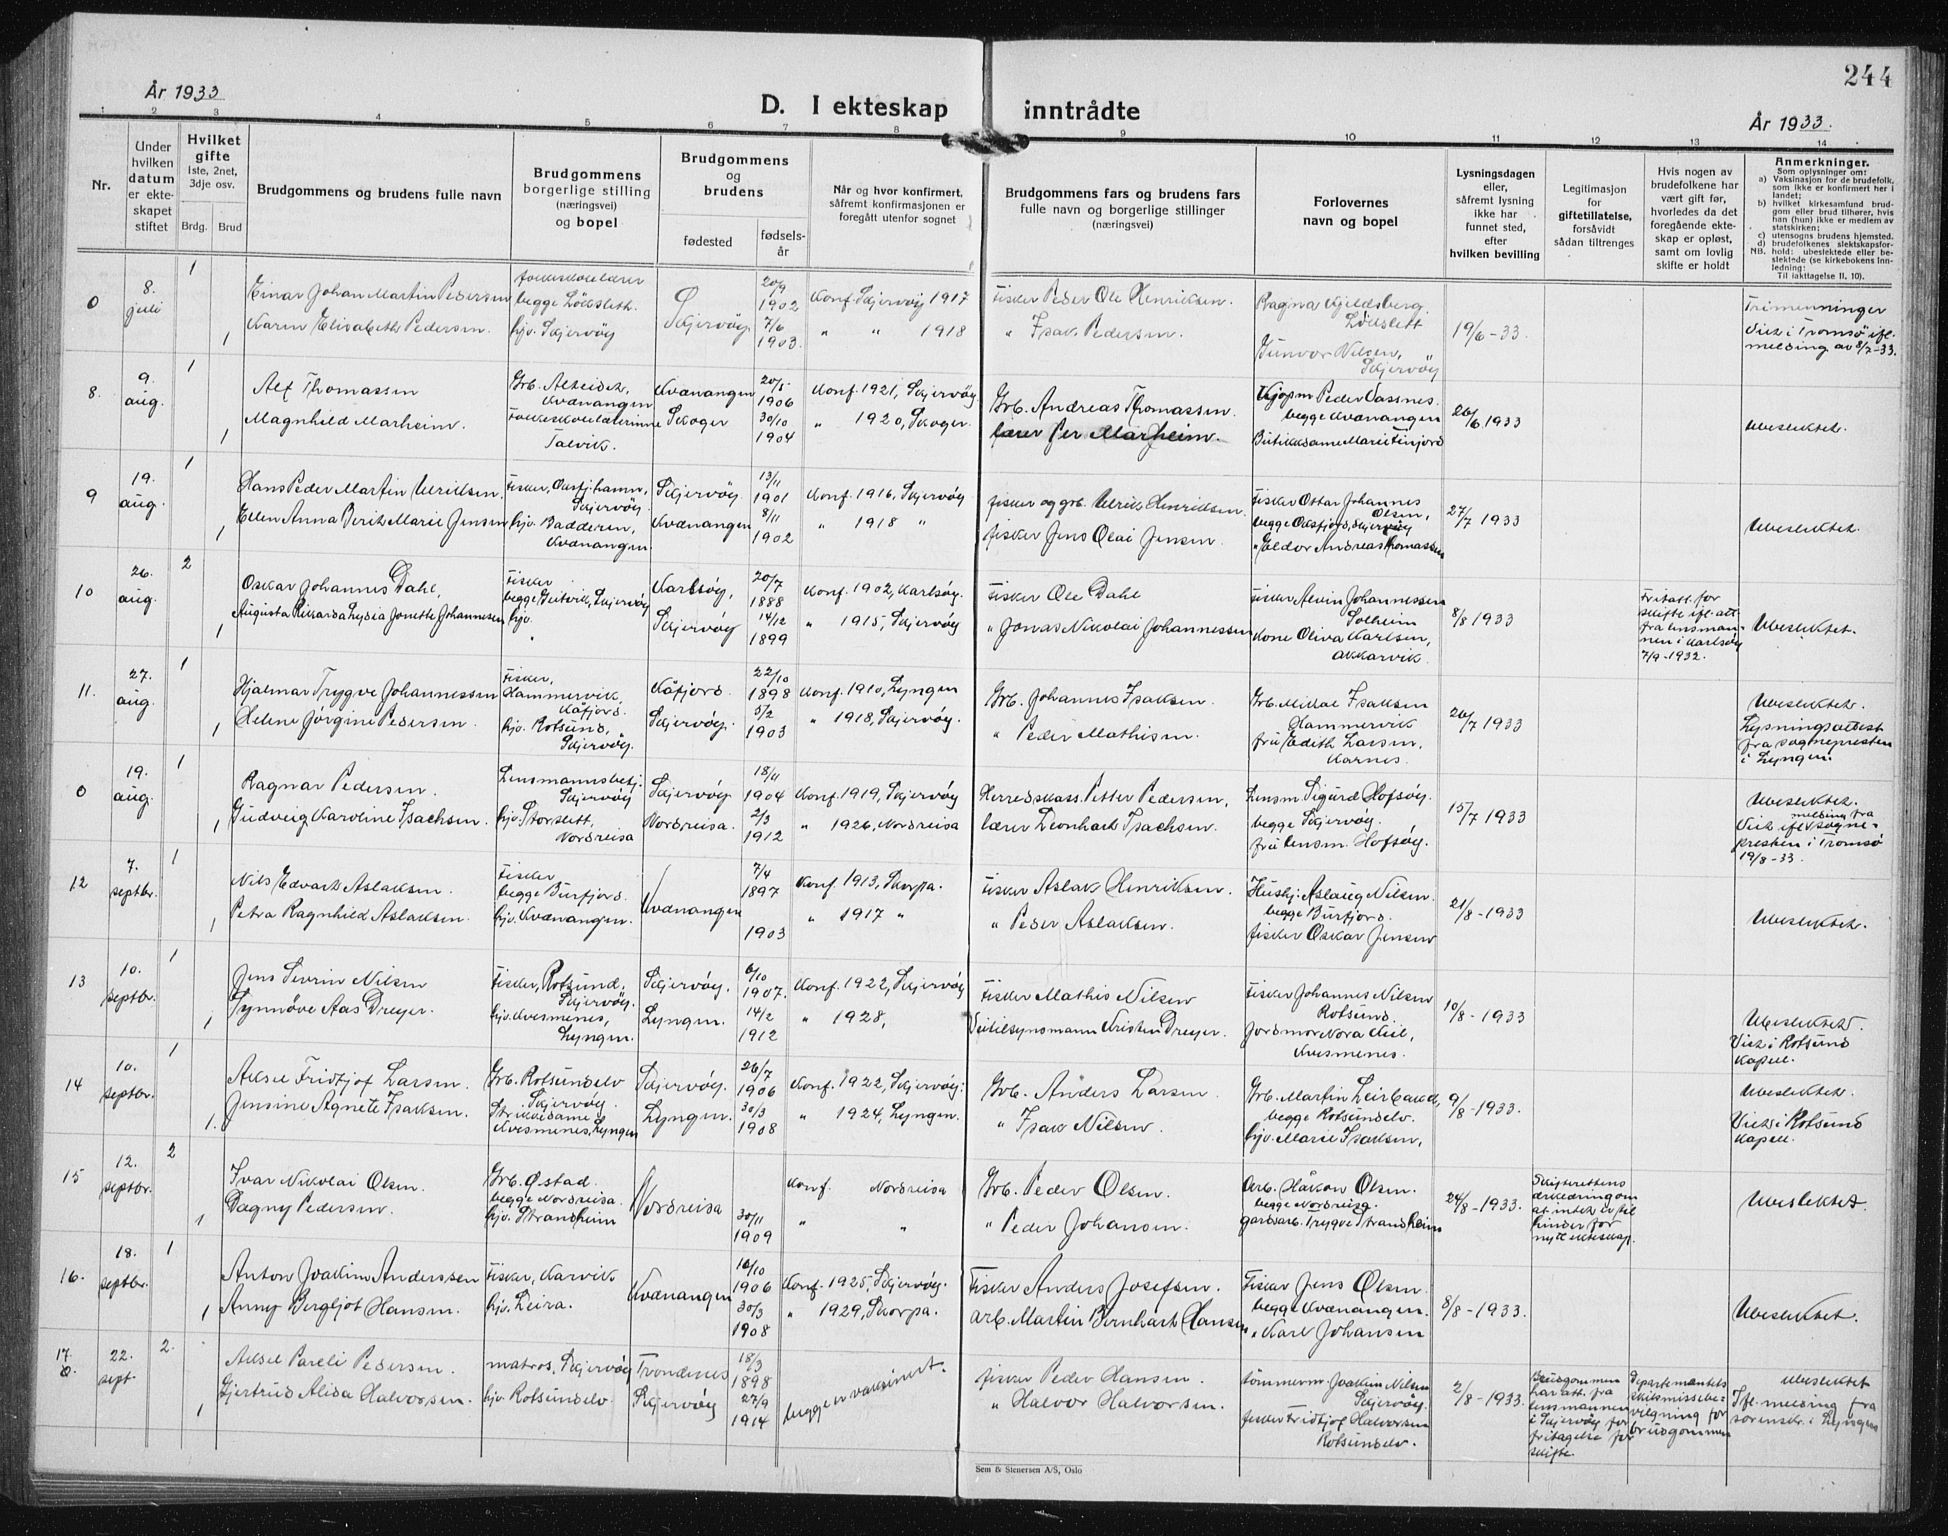 244
År 1933
D. I ekteskap inntrådte
År 1933.
1 2 3 4 5 6 7 8 9 10 11 12 13 14
Nr.
Under hvilken datum er ekteskapet stiftet
Hvilket gifte
1ste, 2net, 3dje osv.
Brdg. Brud
Brudgommens og brudens fulle navn
Brudgommens borgerlige stilling (næringsvei) og bopel
Brudgommens og brudens
fødested
fødselsår
Når og hvor konfirmert, såfremt konfirmasjonen er foregått utenfor sognet
Brudgommens fars og brudens fars fulle navn og borgerlige stillinger (næringsvei)
Forlovernes navn og bopel
Lysningsdagen eller, såfremt lysning ikke har funnet sted, efter hvilken bevilling
Legitimasjon for giftetillatelse, forsåvidt sådan tiltrenges
Hvis nogen av brudefolkene har vært gift før, hvorledes da det foregående ekteskap er opløst, samt om lovlig skifte er holdt
Anmerkninger.
Som oplysninger om:
a) Vaksinasjon for de brudefolk, som ikke er konfirmert her i landet;
b) hvilket kirkesamfund brudgom eller brud tilhører, hvis han (hun) ikke er medlem av statskirken;
c) utensogns brudens hjemsted.
d) brudefolkenes slektskapsforhold: ubeslektede eller beslektede (se kirkebokens Innledning:
NB. Til iakttagelse II, 10).
0 8. juli 1 Einar Johan Martin Pedersen folkeskolelærer begge Lökslett. Skjervöy 20/9 1902 Konf. Skjervöy 1917 fisker Peder Ole Henriksen. Ragna Kjeldsberg, Lökslett 19/6-33. Trimenninger
1 Karin Elisabeth Pedersen. hjv. Skjervöy 7/6 1903. " " 1918 " Isak Pedersen. Gunvor Nilsen, Skjervöy Viet i Tromsø ifl. melding av 8/7-33.
8. 9. aug. 1 Alf Thomassen Grb. Alteidet, Kvænangen Kvænangen 20/5 1906 Konf. 1921, Skjervöy. Grb. Andreas Thomassen. Kjøpm Peder Vassnes. begge Kvænangen 26/6 1933
1 Magnhild Marheim. Folkeskolelærerinne Talvik. Skoger 30/10 1904 " 1920, Skoger. lærer Per Marheim. Butikkdame Marie Finjord Ubeslektet.
9 19. aug. 1 Hans Peder Martin Ulriksen. fisker, Oksfjhamn, Skjervöy. Skjervöy. 13/11 1901 Konf. 1916, Skjervöy fisker og grb. Ulrik Henriksen. fisker Ottar Johannes Olsen, begge Oksfjord, Skjervöy 27/7 1933
1 Ellen Anna Berit Marie Jensen hjv. Badderen, Kvænangen. Kvænangen 8/11 1902 " 1918 " fisker Jens Olai Jensen. " Haldor Andreas Thomassen Ubeslektet.
10 26. aug. 2 Oskar Johannes Dahl, fisker begge Geitvik, Skjervöy Karlsöy, 20/7 1888 Konf. 1902, Karlsöy. fisker Ole Dahl fisker Alvin Johannessen Solheim 8/8 1933 Fritatt for skifte ifl. att. fra lensmannen i Karlsöy 7/9-1932.
1 Augusta Rikarda Lydia Jonette Johannesen hjv. " Skjervöy 14/12 1899 " 1915, Skjervöy " Jonas Nikolai Johannessen Kone Oliva Karlsen, Akkarvik. Ubeslektet.
11. 27. aug. 1 Hjalmar Trygve Johannessen fisker, Hammervik, Kåfjord. Kåfjord. 22/10 1898 Konf. 1910, Lyngen Grb. Johannes Isaksen. Grb. Mikal Isaksen Hammervik 26/7 1933 Ubeslektet.
1 Helene Jörgine Pedersen. hjv. Rotsund, Skjervöy. Skjervöy. 5/2 1903 " 1918, Skjervöy. " Peder Mathisen. fru Edith Larsen, Karnes. Lysningsattest fra sognepresten i Lyngen.
0 19. aug. 1 Ragnar Pedersen. Lensmannsbetj. Skjervöy Skjervöy. 18/11 1904 Konf. 1919, Skjervöy Herredskass. Petter Pedersen, Lensm. Sigurd Hofsöy. begge Skjervöy. 15/7 1933 Ubeslektet.
1 Gudveig Karoline Isachsen. hjv. Storslett, Nordreisa Nordreisa. 2/3 1912 " 1926, Nordreisa lærer Leonhard Isachsen. fru lensm. Hofsöy. Viet ifl. melding fra sognepresten i Tromsø 19/8-33.
12 7. septbr. 1 Nils Edvart Aslaksen. fisker begge Burfjord. Kvænangen 7/4 1897 Konf. 1913, Skorpa. fisker Aslak Henriksen. Hushj: Aslaug Nilsen. begge Burfjord. 21/8-1933
1 Petra Ragnhild Aslaksen. hjv. Kvænangen. 1903 " 1917 " " Peder Aslaksen. fisker Oskar Jensen Ubeslektet.
13 10. septbr. 1 Jens Sevrin Nilsen fisker, Rotsund, Skjervöy. Skjervöy. 6/10 1907. Konf. 1922, Skjervöy fisker Mathis Nilsen fisker Johannes Nilsen Rotsund. 10/8-1933
1 Synnöve Aas Dreyer. hjv. Kvesmenes, Lyngen. Lyngen. 14/2 1912 " 1928, Veitilsynsmann Kristen Dreyer. Jordmor Nora Keil, Kvesmenes. Ubeslektet. Viet i Rotsund kapell.
14 10. septbr. 1 Aksel Fridtjof Larsen. Grb. Rotsundelv Skjervöy. Skjervöy. 26/7 1906 Konf. 1922, Skjervöy: Grb. Anders Larsen. Grb. Martin Leirbakk, begge Rotsundelv. 9/8-1933. Ubeslektet.
1. Jensine Agnete Isaksen. Strikkedame Kvesmenes, Lyngen Lyngen. 30/3 1908 " 1924, Lyngen. " Isak Nilsen. hjv. Marie Isaksen, Viet i Rotsund kapell.
15 12. septbr. 2 Ivar Nikolai Olsen. Grb. Østad. begge Nordreisa. Nordreisa Konf. Nordreisa Grb. Peder Olsen. Arb. Håkon Olsen. begge Nordreisa. 24/8-1933. Skifterettens erklæring om at intet er til hinder for nytt ekteskap. Ubeslektet.
1 Dagny Pedersen. hjv. Strandheim 30/11 1909 " " " Peder Johansen. gardsarb. Trygve Strandheim
16. 18. septbr. 1 Anton Joakim Anderssen fisker, Karvik Kvænangen 16/10 1906 Konf. 1925, Skjervöy. Fisker Anders Josefsen. Fisker Jens Olsen begge Kvænangen. 8/8-1933.
1 Anny Bergljot Hansen. hjv. Leira. 30/3 1908 " 1929, Skorpa. arb. Martin Bernhart Hansen " Karl Johansen Ubeslektet.
17. 0. 22. sept. 2. Aksel Pareli Pedersen. matros, Skjervöy Trondenes 18/3 1898 begge er vaksinert. fisker Peder Hansen. tömmerm. Joakim Nilsen Skjervöy. 2/8-1933. Brudgommen har att. fra lensmannen i Skjervöy for fritagelse for skifte. Departementets skilsmissebevilgning for brudgommen Ubeslektet
1 Gjertrud Alida Halvorsen. hjv. Rotsundelv. Skjervöy 27/9 1914 " Halvor Halvorsen. fisker Fridtjof Halvorsen Rotsundelv. Ifl. melding fra sorenskr. i Lyngen
Sem & Stenersen A/S, Oslo